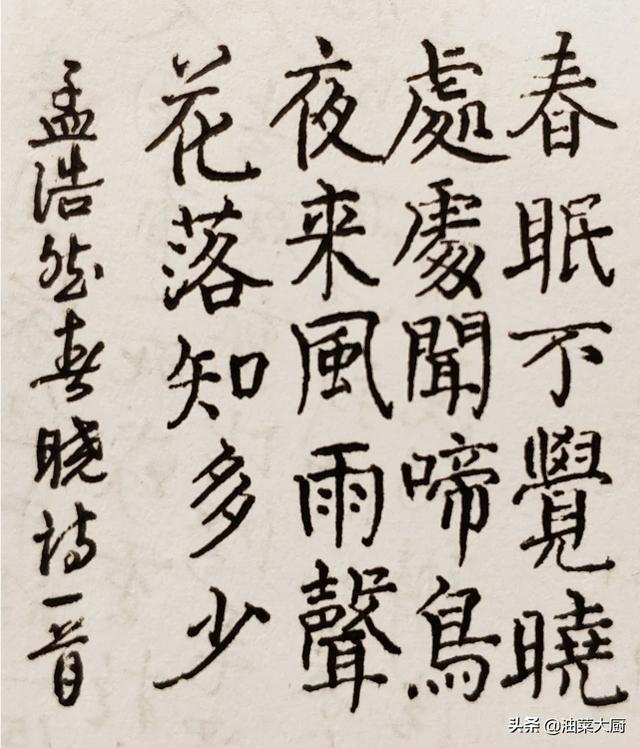 春眠不覺曉
處處聞啼鳥
夜来風雨聲
花落知多少
孟浩然春曉詩一首
头条 @油菜大厨